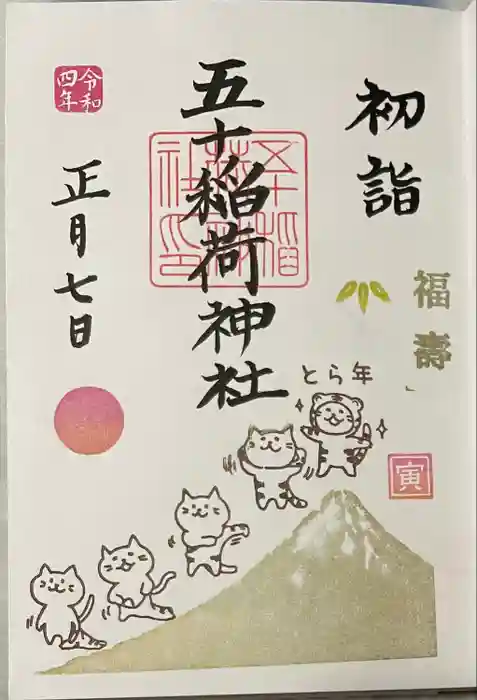 初詣
福壽
五十稲荷神社
令和四年
正月七日
とら年
寅